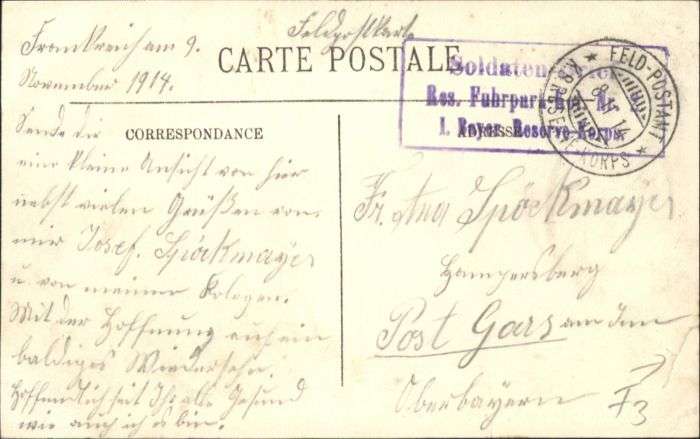 Feldpostkarte
Frankreich am 9.
November 1914.
CARTE POSTALE
Soldaten
Res. Fuhrpark
1. Bayer. Reserve-Korps.
FELD-POSTAMT
K.B. I. RESERVE-KORPS
8 XI 14
CORRESPONDANCE
ADRESSE
Sende dir
eine kleine Ansicht von hier
nebst vielen Grüßen von
mir Josef Spöckmayer
u. von meinen Kologen.
Mit der Hoffnung auf ein
baldiges Wiedersehn.
Hoffentlich seit Ihr alle Gesund
wie auch ich es bin.
Fr. Ana Spöckmayer
Hampersberg
Post Gars am Inn
Oberbayern